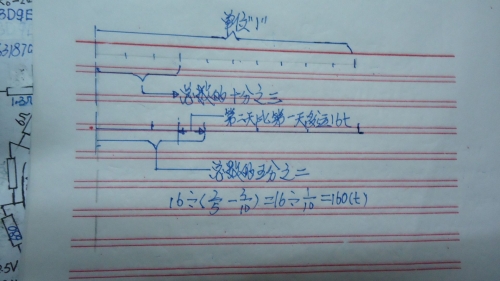 单位"1"
总数的十分之三
第二天比第一天多运16t
总数的五分之二
16÷(2/5-3/10)=16÷1/10=160(t)
3D9E